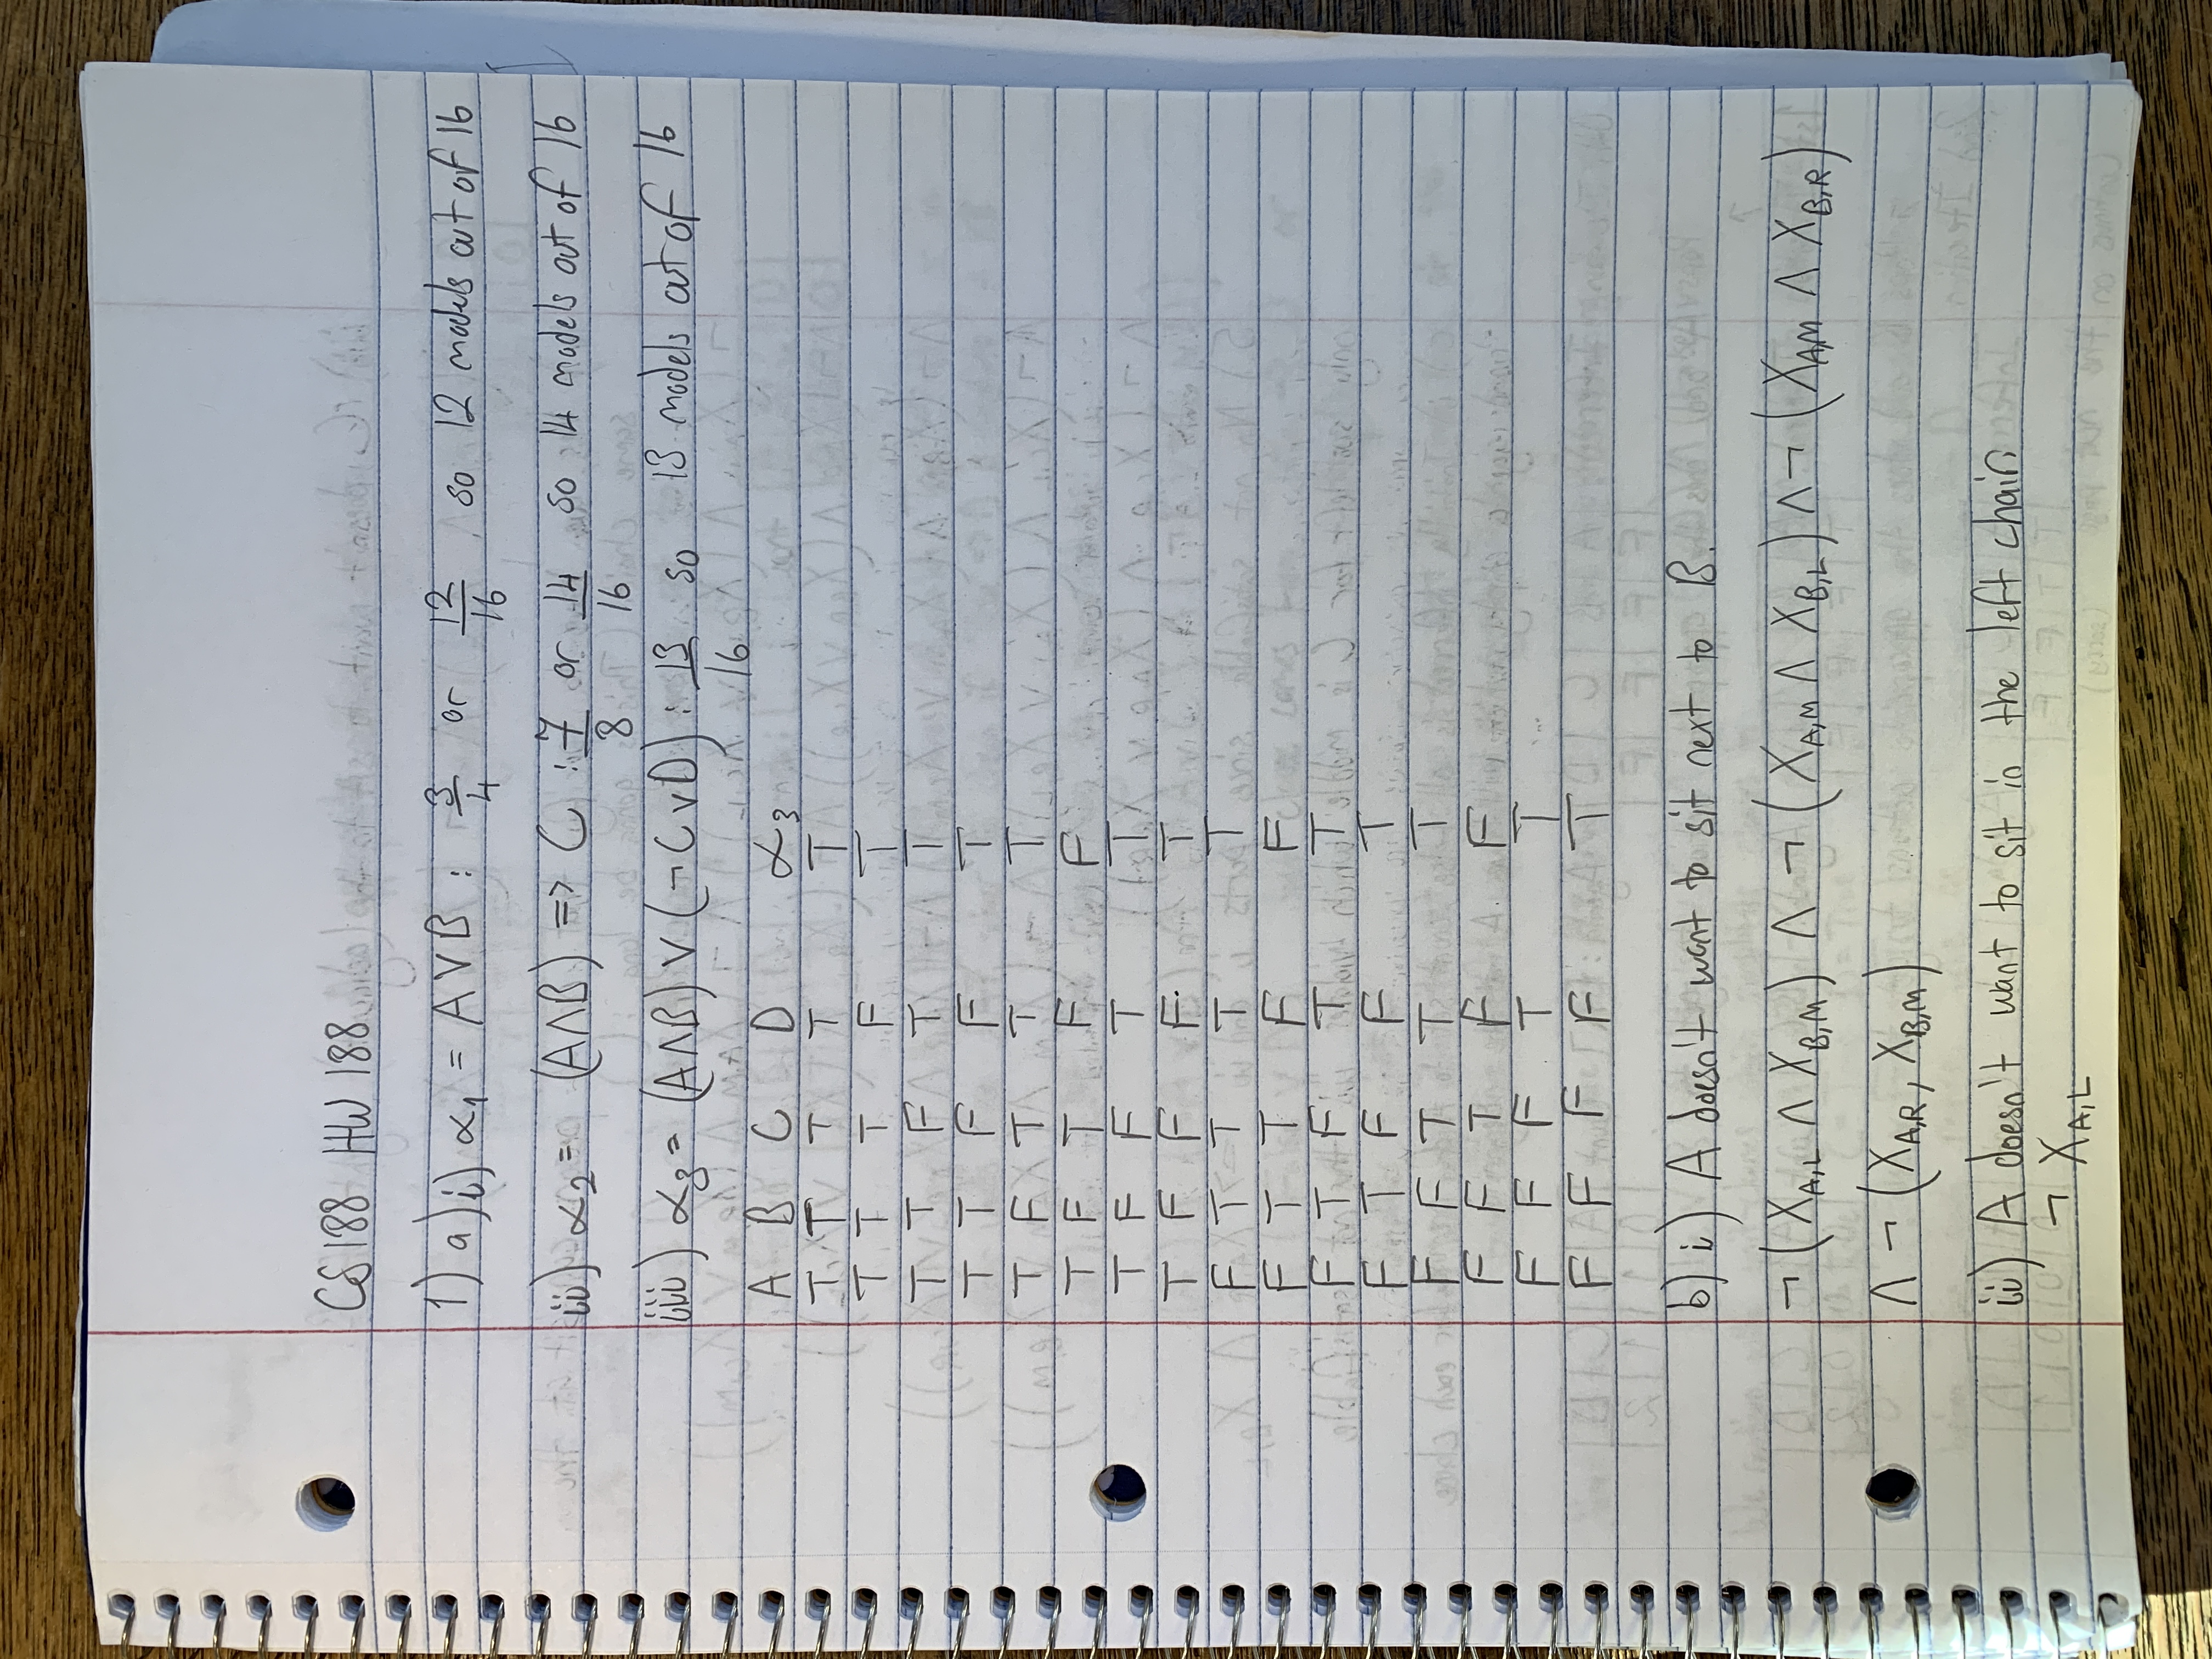 CS188 HW 188
1) a) i) α₁ = A ∨ B : 3/4 or 12/16 so 12 models out of 16
ii) α₂ = (A∧B) => C : 7/8 or 14/16 so 14 models out of 16
iii) α₃ = (A∧B) ∨ (¬C∨D) : 13/16 so 13 models out of 16
A B C D α₃
T T T T T
T T T F T
T T F T T
T T F F T
T F T T T
T F T F F
T F F T T
T F F F T
F T T T T
F T T F F
F T F T T
F T F F T
F F T T T
F F T F F
F F F T T
F F F F T
b) i) A doesn't want to sit next to B.
¬ (X_{A,L} ∧ X_{B,M}) ∧ ¬ (X_{A,M} ∧ X_{B,L}) ∧ ¬ (X_{A,M} ∧ X_{B,R})
∧ ¬ (X_{A,R}, X_{B,M})
ii) A doesn't want to sit in the left chair
¬ X_{A,L}